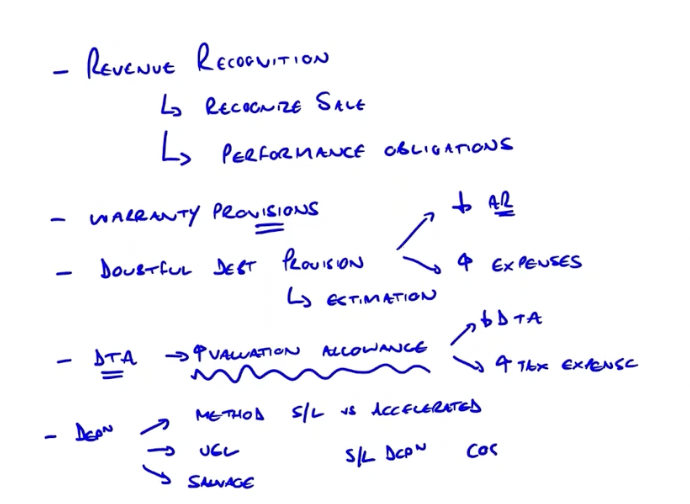 - REVENUE RECOGNITION
↳ RECOGNIZE SALE
↳ PERFORMANCE OBLIGATIONS
- WARRANTY PROVISIONS
↓ AR
- DOUBTFUL DEBT PROVISION
↑ EXPENSES
↳ ESTIMATION
- DTA → ↑ VALUATION ALLOWANCE
↓ DTA
↑ TAX EXPENSE
- DEPN
METHOD S/L VS ACCELERATED
→ UGL S/L DEPN COS
SALVAGE